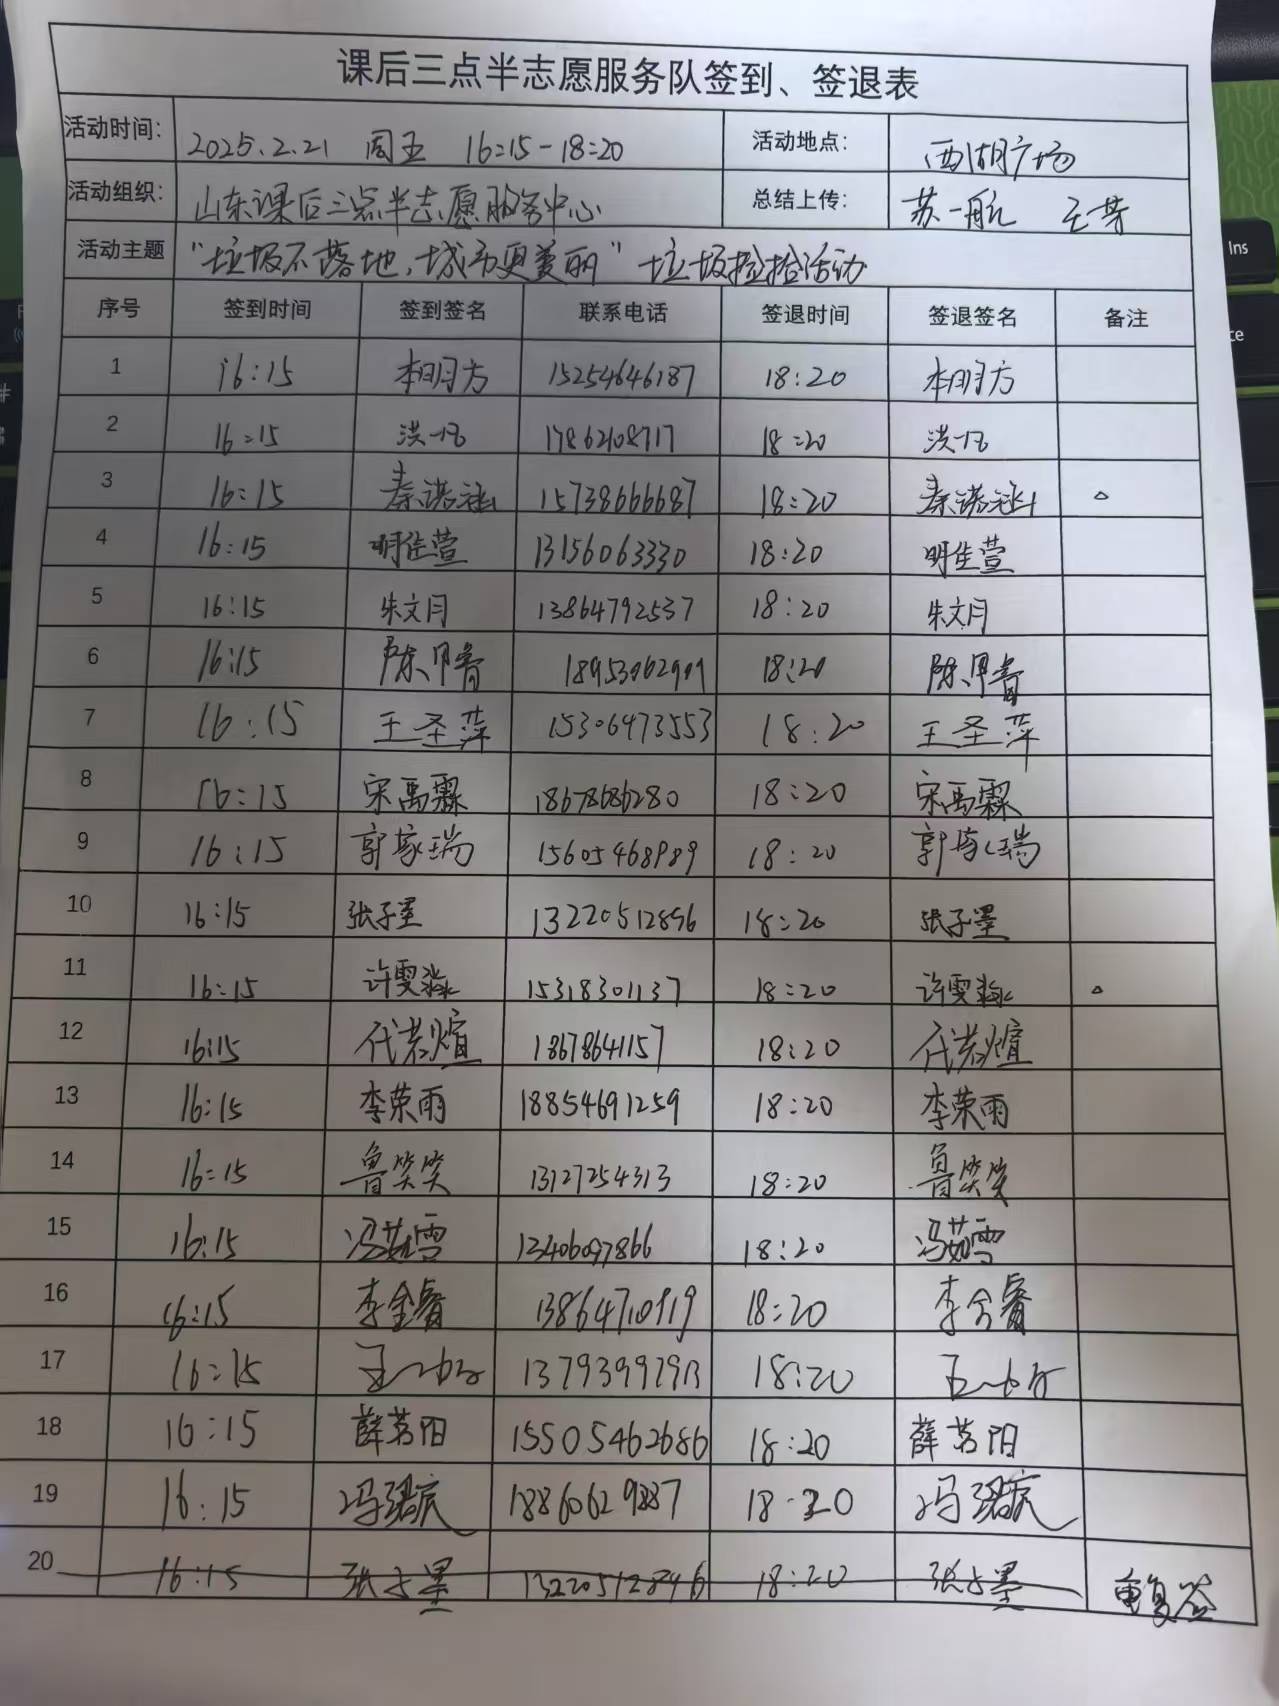 课后三点半志愿服务队签到、签退表
活动时间: 2025.2.21 周五 16:15-18:20 活动地点: 西湖广场
活动组织: 山东课后三点半志愿服务中心 总结上传: 苏一航 王芳
活动主题 “垃圾不落地,城市更美丽” 垃圾捡捡活动
序号 签到时间 签到签名 联系电话 签退时间 签退签名 备注
1 16:15 15254646187 18:20
2 16:15 洪一凡 17862108717 18:20 洪一凡
3 16:15 秦诺涵 15738666687 18:20 秦诺涵 △
4 16:15 明佳萱 13156063330 18:20 明佳萱
5 16:15 朱文月 13864792537 18:20 朱文月
6 16:15 18:20
7 16:15 王圣萍 15306473553 18:20 王圣萍
8 16:15 宋禹霖 18678686280 18:20 宋禹霖
9 16:15 郭家瑞 15605468989 18:20 郭家瑞
10 16:15 张子墨 13220512896 18:20 张子墨
11 16:15 许雯淼 15318301137 18:20 许雯淼 △
12 16:15 代若煊 18678641157 18:20 代若煊
13 16:15 李荣雨 18854691259 18:20 李荣雨
14 16:15 鲁笑笑 13127254313 18:20 鲁笑笑
15 16:15 冯茹雪 13406097866 18:20 冯茹雪
16 16:15 李金睿 13864710919 18:20 李金睿
17 16:15 18:20
18 16:15 薛茗阳 15505462686 18:20 薛茗阳
19 16:15 18860629887 18:20
20 16:15 张子墨 13220512896 18:20 张子墨 重复签
Ins